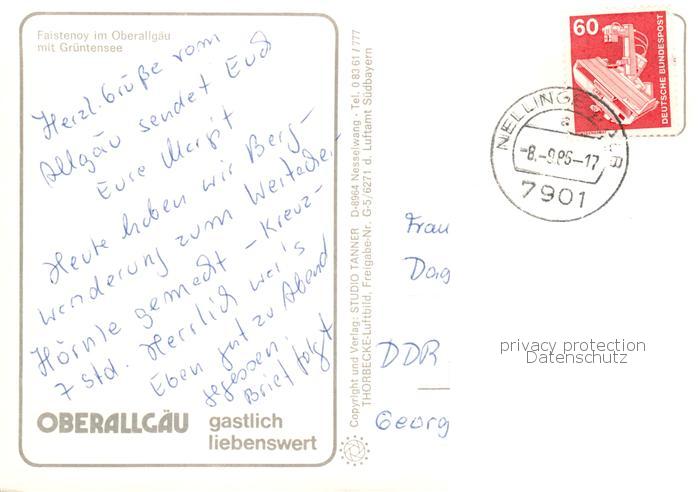 Faistenoy im Oberallgäu
mit Grüntensee
Herzl. Grüße vom
Allgäu sendet Euch
Eure Margit
Heute haben wir Berg-
wanderung zum
Hörnle gemacht - Kreuz-
7 Std. Herrlich war's
Eben gut zu Abend
gegessen.
Brief folgt
OBERALLGÄU gastlich
liebenswert
Copyright und Verlag: STUDIO TANNER D-8964 Nesselwang · Tel. 0 83 61 / 777
THORBECKE-Luftbild, Freigabe-Nr. G-5/6271 d. Luftamt Südbayern
60
DEUTSCHE BUNDESPOST
NELLINGE
a
-8.-9.86-17
7901
Frau
Dag
DDR
Georg
privacy protection
Datenschutz